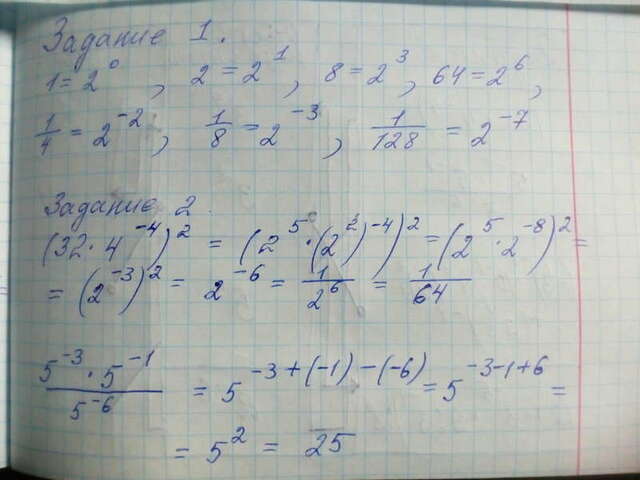 Задание 1.
1 = 2⁰, 2 = 2¹, 8 = 2³, 64 = 2⁶,
1/4 = 2⁻², 1/8 = 2⁻³, 1/128 = 2⁻⁷
Задание 2.
(32 · 4⁻⁴)² = (2⁵ · (2²)⁻⁴)² = (2⁵ · 2⁻⁸)² =
= (2⁻³)² = 2⁻⁶ = 1/2⁶ = 1/64
5⁻³ · 5⁻¹ / 5⁻⁶ = 5⁻³⁺⁽⁻¹⁾⁻⁽⁻⁶⁾ = 5⁻³⁻¹⁺⁶ =
= 5² = 25